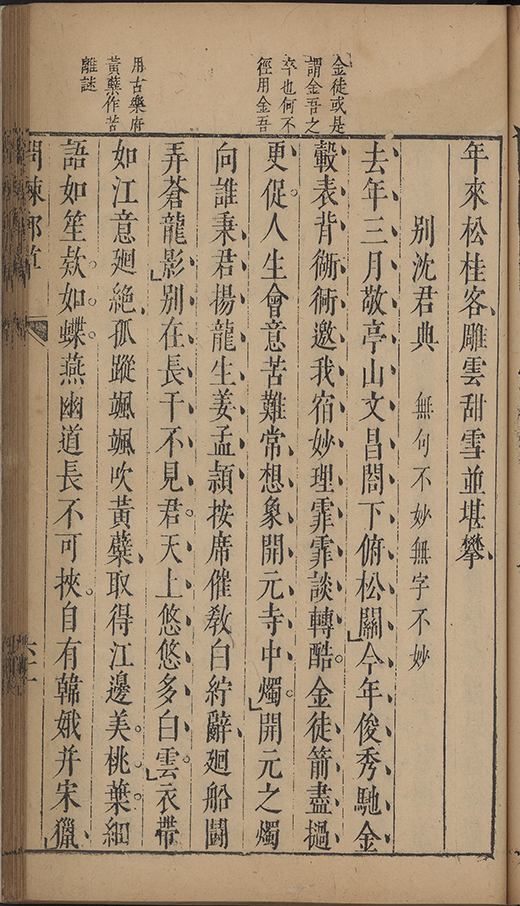 金徒或是
謂金吾之
卒也何不
徑用金吾
用古樂府
黃蘗作苦
離謎
年來松桂客雕雲甜雪並堪攀
別沈君典 無句不妙無字不妙
去年三月敬亭山文昌閣下俯松關今年俊秀馳金
轂表背衚衕邀我宿妙理霏霏談轉酷金徒箭盡撾
更促人生會意苦難常想象開元寺中燭開元之燭
向誰秉君揚龍生姜孟潁按席催教白紵辭廻船鬪
弄蒼龍影別在長干不見君天上悠悠多白雲衣帶
如江意廻絶孤蹤颯颯吹黃蘗取得江邊美桃葉細
語如笙欵如蝶燕幽道長不可挾自有韓娥并宋獵